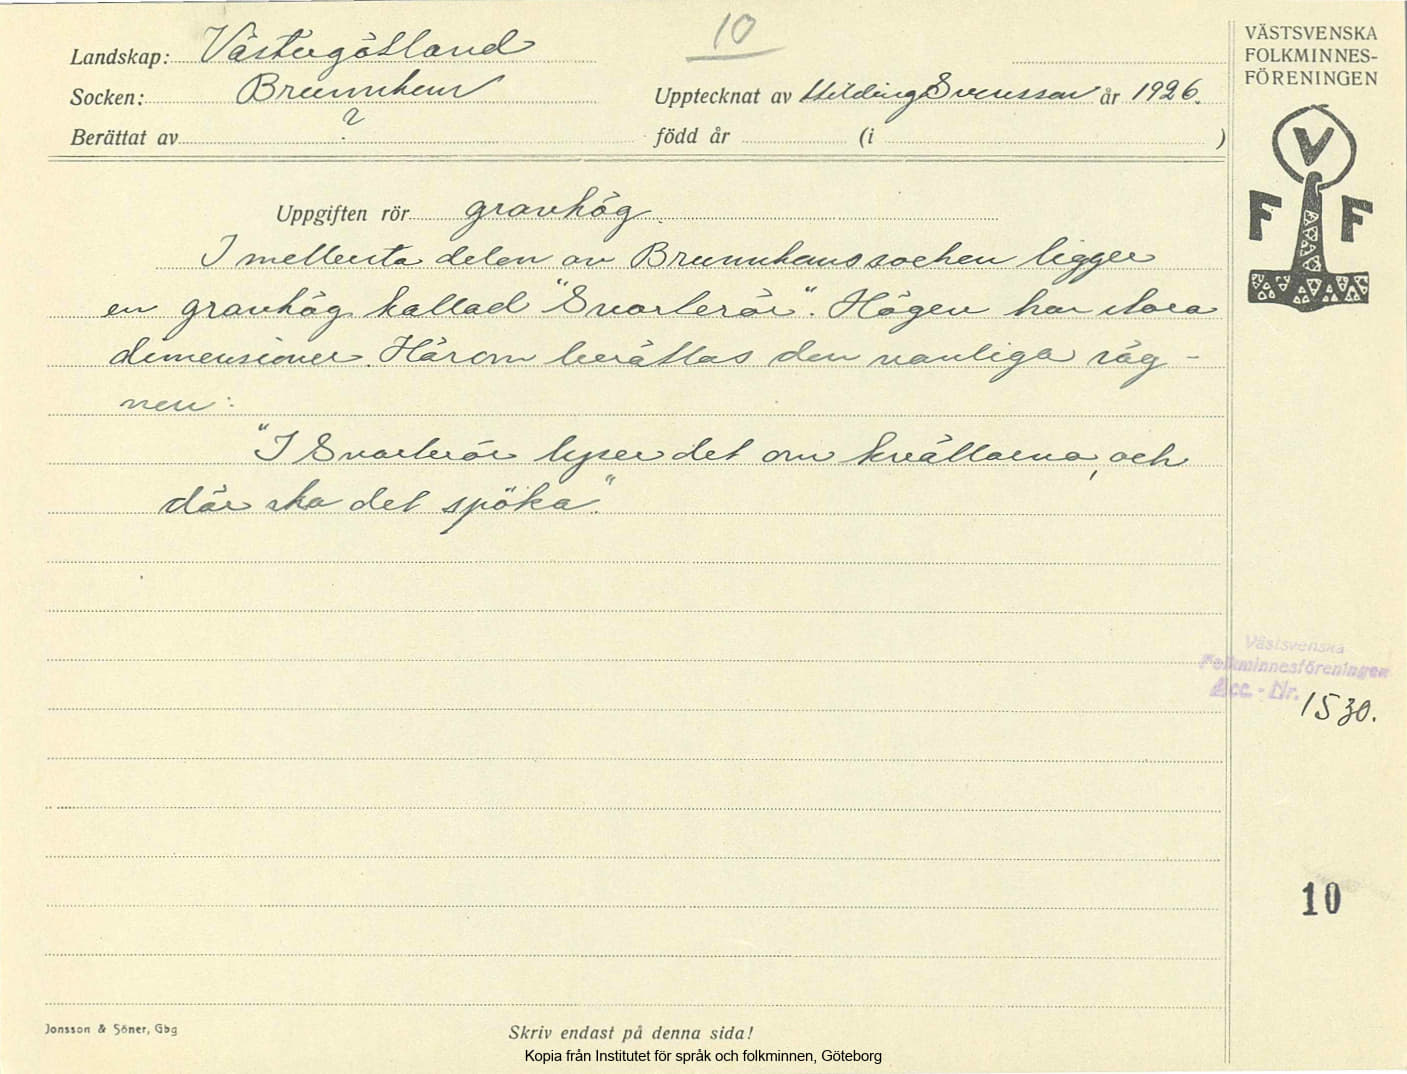 10
Landskap: Västergötland
Socken: Brunnhem
Upptecknat av Hilding Svensson år 1926.
Berättat av ?
född år (i )
VÄSTSVENSKA
FOLKMINNES-
FÖRENINGEN
V
F F
Uppgiften rör gravhög.
I mellersta delen av Brunnhems socken ligger
en gravhög kallad "Svarterör". Högen har stora
dimensioner. Härom berättas den vanliga säg-
nen:
"I Svarterör lyser det om kvällarna, och
där ska det spöka."
Västsvenska
Folkminnesföreningen
Acc. - Nr. 1530.
10
Jonsson & Söner, Gbg
Skriv endast på denna sida!
Kopia från Institutet för språk och folkminnen, Göteborg